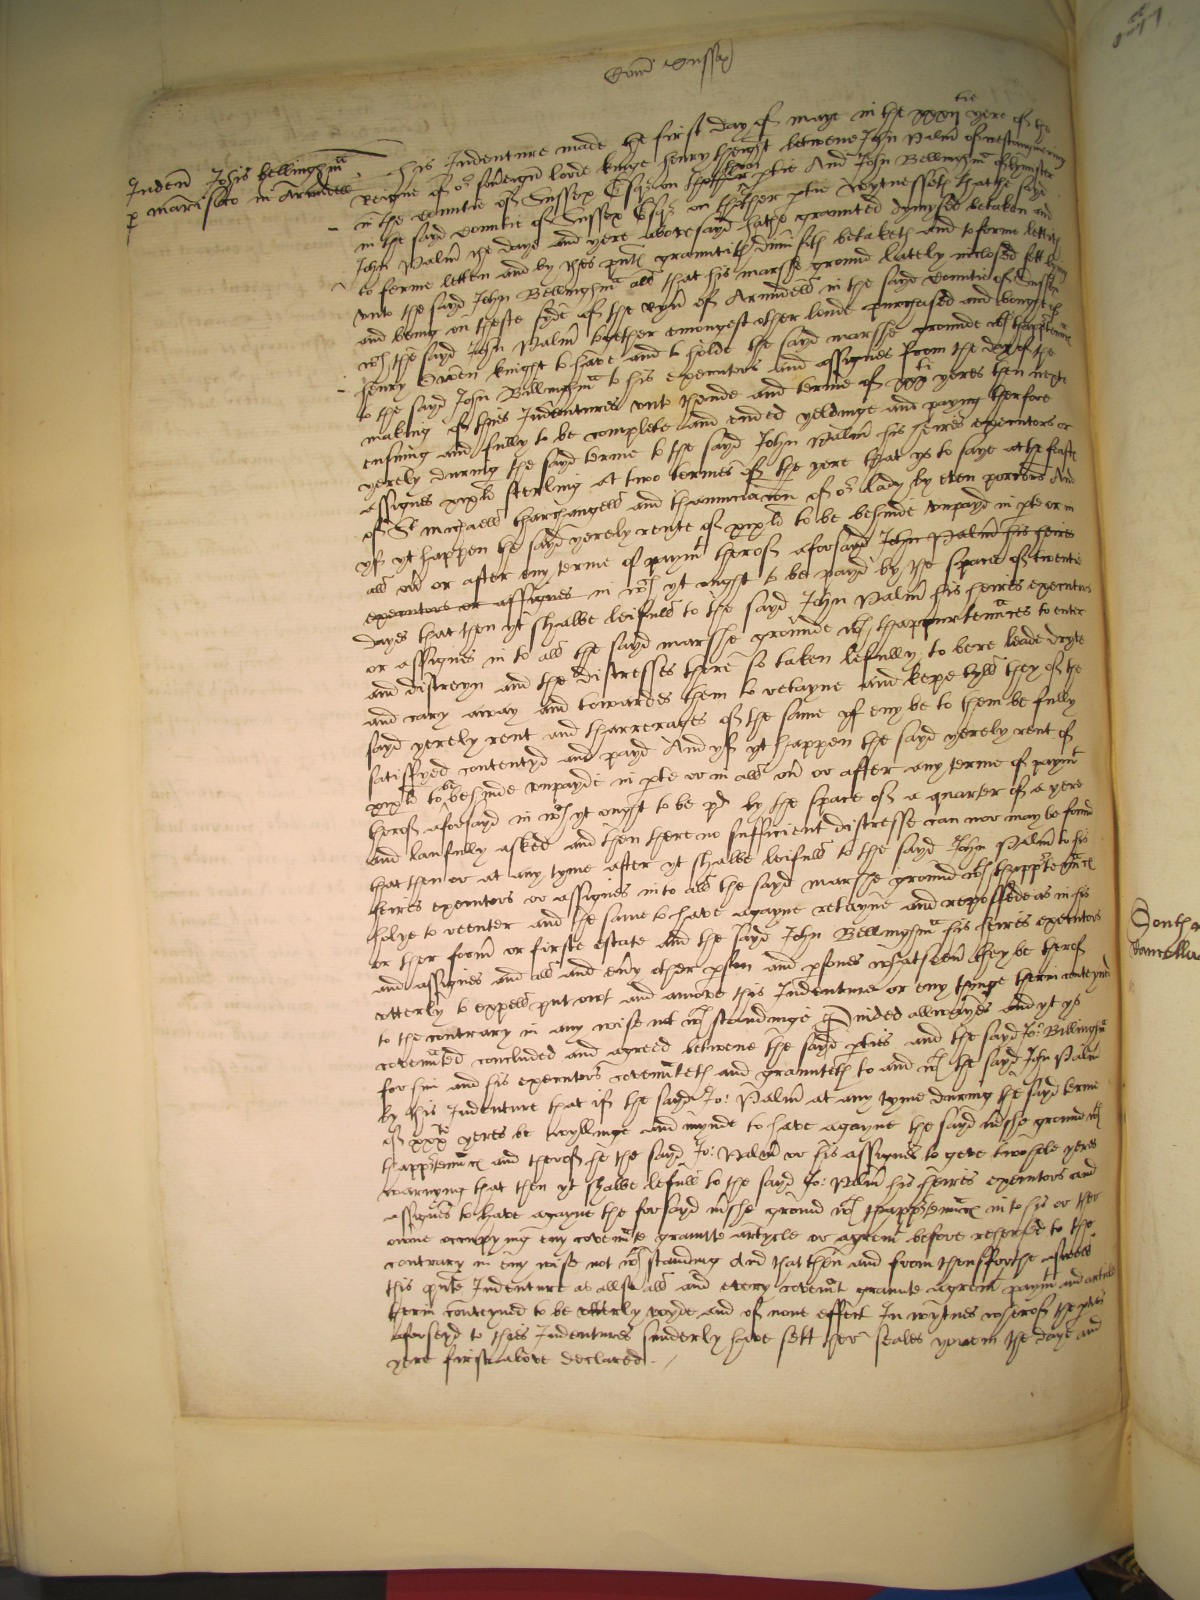 Com Sussex
Inden Johis Bellinghm
p marisco in Arundell
this Indenture made the first day of maye in the xxxij tie yere of the
Reigne of or soveraign lorde kinge henry theight betwene John Palm of westangmering
in the Countie of Sussex Esqr on thone ptie And John Bellinghm of lymster
in the sayd Countie of Sussex Esqr on thother ptie Wytnesseth that the sayd
John Palm the daye and yere abovesayd hathe graunted dymysed betaken and
to ferme letten and by thes pnts grauntith dimisith betaketh and to ferme letteth
unto the sayd John Bellinghm all that his marsshe ground lately inclosed sett lying
and being on theste syde of the town of Arundell in the sayd Countie of Sussex
wch the sayd John Palm together emongest other londe purchased and bought of
henry Owen knight to have and to holde the sayd marsshe grounde wth thapptennces
to the sayd John Bellinghm to his executors and assignes from the day of the
making of thies Indentures unto thende and terme of xxx ti yeres then next
ensuing and fully to be complete and ended yeldinge and paying therfore
yerely during the sayd terme to the sayd John Palm his heires executors or
assignes xixli sterling at two termes of the yere that ys to saye at the feaste
of St michaell tharchangell and thanunciacion of or lady by even porcons And
yf yt happen the sayd yerely rente of xixli to be behinde unpayd in pte or in
all ovr or after eny terme of paymt therof aforsayd John Palm his heires
executors or assignes in wch yt ought to be payd by the space of twentie
dayes that then yt shalbe leifull to the sayd John Palm his heires executors
or assignes in to all the sayd marshe grounde wth thappurtennces to enter
and distreyn and the distresses there so taken lefully to bere leade dryve
and cary away and towardes them to retayne and kepe tyll they of the
sayd yerely rent and tharrerages of the same yf eny be to them be fully
satisfyed contentyd and payd And yf yt happen the sayd yerely rent of
xixli to be behinde unpayde in pte or in all ovr or after any terme of paymt
therof aforsayd in wch yt ought to be pd by the space of a quarter of a yere
and laufully asked and then there no sufficient distresse can nor may be found
that then or at any tyme after yt shalbe leifull to the sayd John Palm to his
heires executors or assignes into all the sayd marshe ground wth thapptennces
holye to reenter and the same to have agayne retayne and repossede as in his
or ther form or firste estate and the sayd John Bellinghm his heires executors
and assignes and all and evry other pson and psones whatsoevr they be therof
utterly to expell put out and amove this Indenture or eny thinge therin conteyned
to the contrary in any wise not wth standinge Provided allwayes and yt ys
covennted concluded and agreed betwene the sayd pties and the sayd Jo: Billinghm
for him and his executors covennteth and graunteth to and wth the sayd John Palm
by this Indenture that if the sayd Jo: Palm at any tyme during the sayd terme
of xxx ti yeres be wyllinge and mynde to have agayne the sayd mrshe ground wth
thapptennces and therof he the sayd Jo: Palm or his assignes to geve two hole yeres
warnyng that then yt shalbe lefull to the sayd Jo: Palm his heires executors and
assignes to have agayne the forsayd mrshe ground wth thapptennces in to his or ther
owne occupying eny covennte graunte artycle or agremt before rehersed to the
contrary in eny wise not wth standing And that then and from thensforthe aswell
this pnte Indenture as allso all and every covennt graunte agremt paymt and article
therin conteyned to be utterly voyde and of none effect In wytnes wherof the pties
aforseyd to thies Indentures sunderly have sett ther seales yoven the daye and
yere first above declared